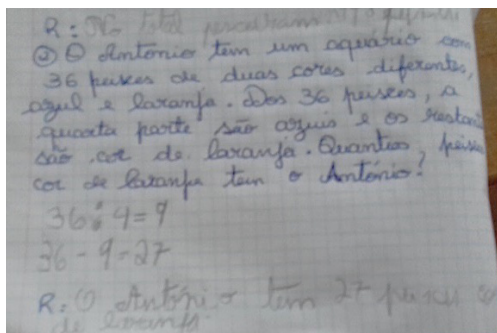 R: No total
② O António tem um aquário com
36 peixes de duas cores diferentes,
azul e laranja. Dos 36 peixes, a
quarta parte são azuis e os restantes
são cor de laranja. Quantos peixes
cor de laranja tem o António?
36 : 4 = 9
36 - 9 = 27
R: O António tem 27 peixes
de laranja.